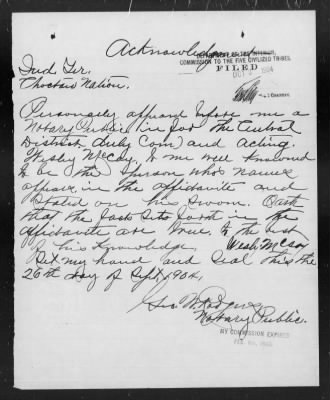 Acknowledgement
DEPARTMENT OF THE INTERIOR,
COMMISSION TO THE FIVE CIVILIZED TRIBES.
FILED
OCT 1904
CHAIRMAN.
Ind Ter.
Choctaw Nation.
Personaly appeard before me a
Notary Public in for the Central
District duly Com and acting.
Wesley McCoy to me well knowed
to be the person who's names
appears in the affidavite and
Stated on his Swoorn. Oath
that the facts Sets forth in the
affidavite are true to the best
of his Knowledge. Wesly McCoy
Set my hand and Seal this the
26th day of Sept 1904.
Geo W. Rodgers
Notary Public.
MY COMMISSION EXPIRES
FEB.